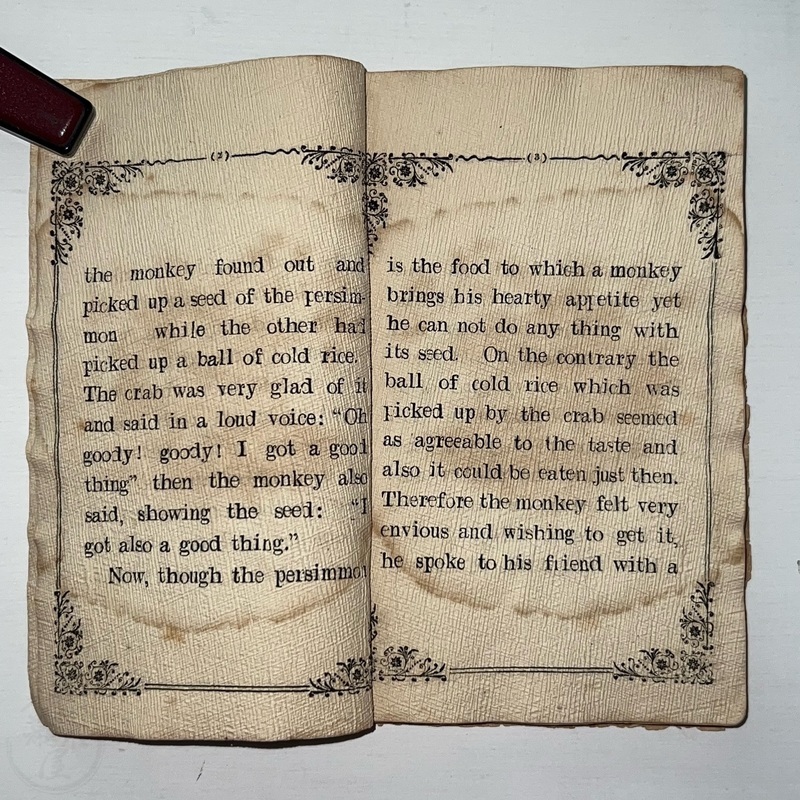 (2)
the monkey found out and
picked up a seed of the persim-
mon while the other had
picked up a ball of cold rice.
The crab was very glad of it
and said in a loud voice: “Oh
goody! goody! I got a good
thing” then the monkey also
said, showing the seed: “I
got also a good thing.”
Now, though the persimmon
(3)
is the food to which a monkey
brings his hearty appetite yet
he can not do any thing with
its seed. On the contrary the
ball of cold rice which was
picked up by the crab seemed
as agreeable to the taste and
also it could be eaten just then.
Therefore the monkey felt very
envious and wishing to get it,
he spoke to his friend with a